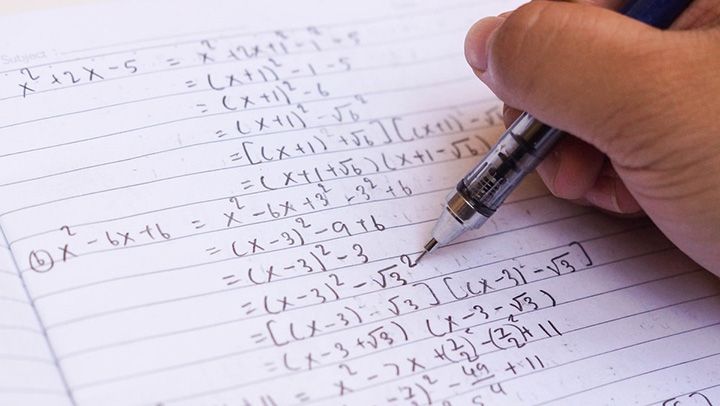 Subject
x² + 2x - 5 = x² + 2x + 1² - 1² - 5
= (x+1)² - 1 - 5
= (x+1)² - 6
= (x+1)² - √6²
= [(x+1) + √6] [(x+1) - √6
= (x+1+√6) (x+1-√6)
(b) x² - 6x + 6 = x² - 6x + 3² - 3² + 6
= (x-3)² - 9 + 6
= (x-3)² - 3
= (x-3)² - √3²
= [(x-3) - √3] [(x-3) - √3]
= (x-3+√3) (x-3-√3)
11 = x² - 7x + (7/2)² - (7/2)² + 11
7/2)² - 49/4 + 11